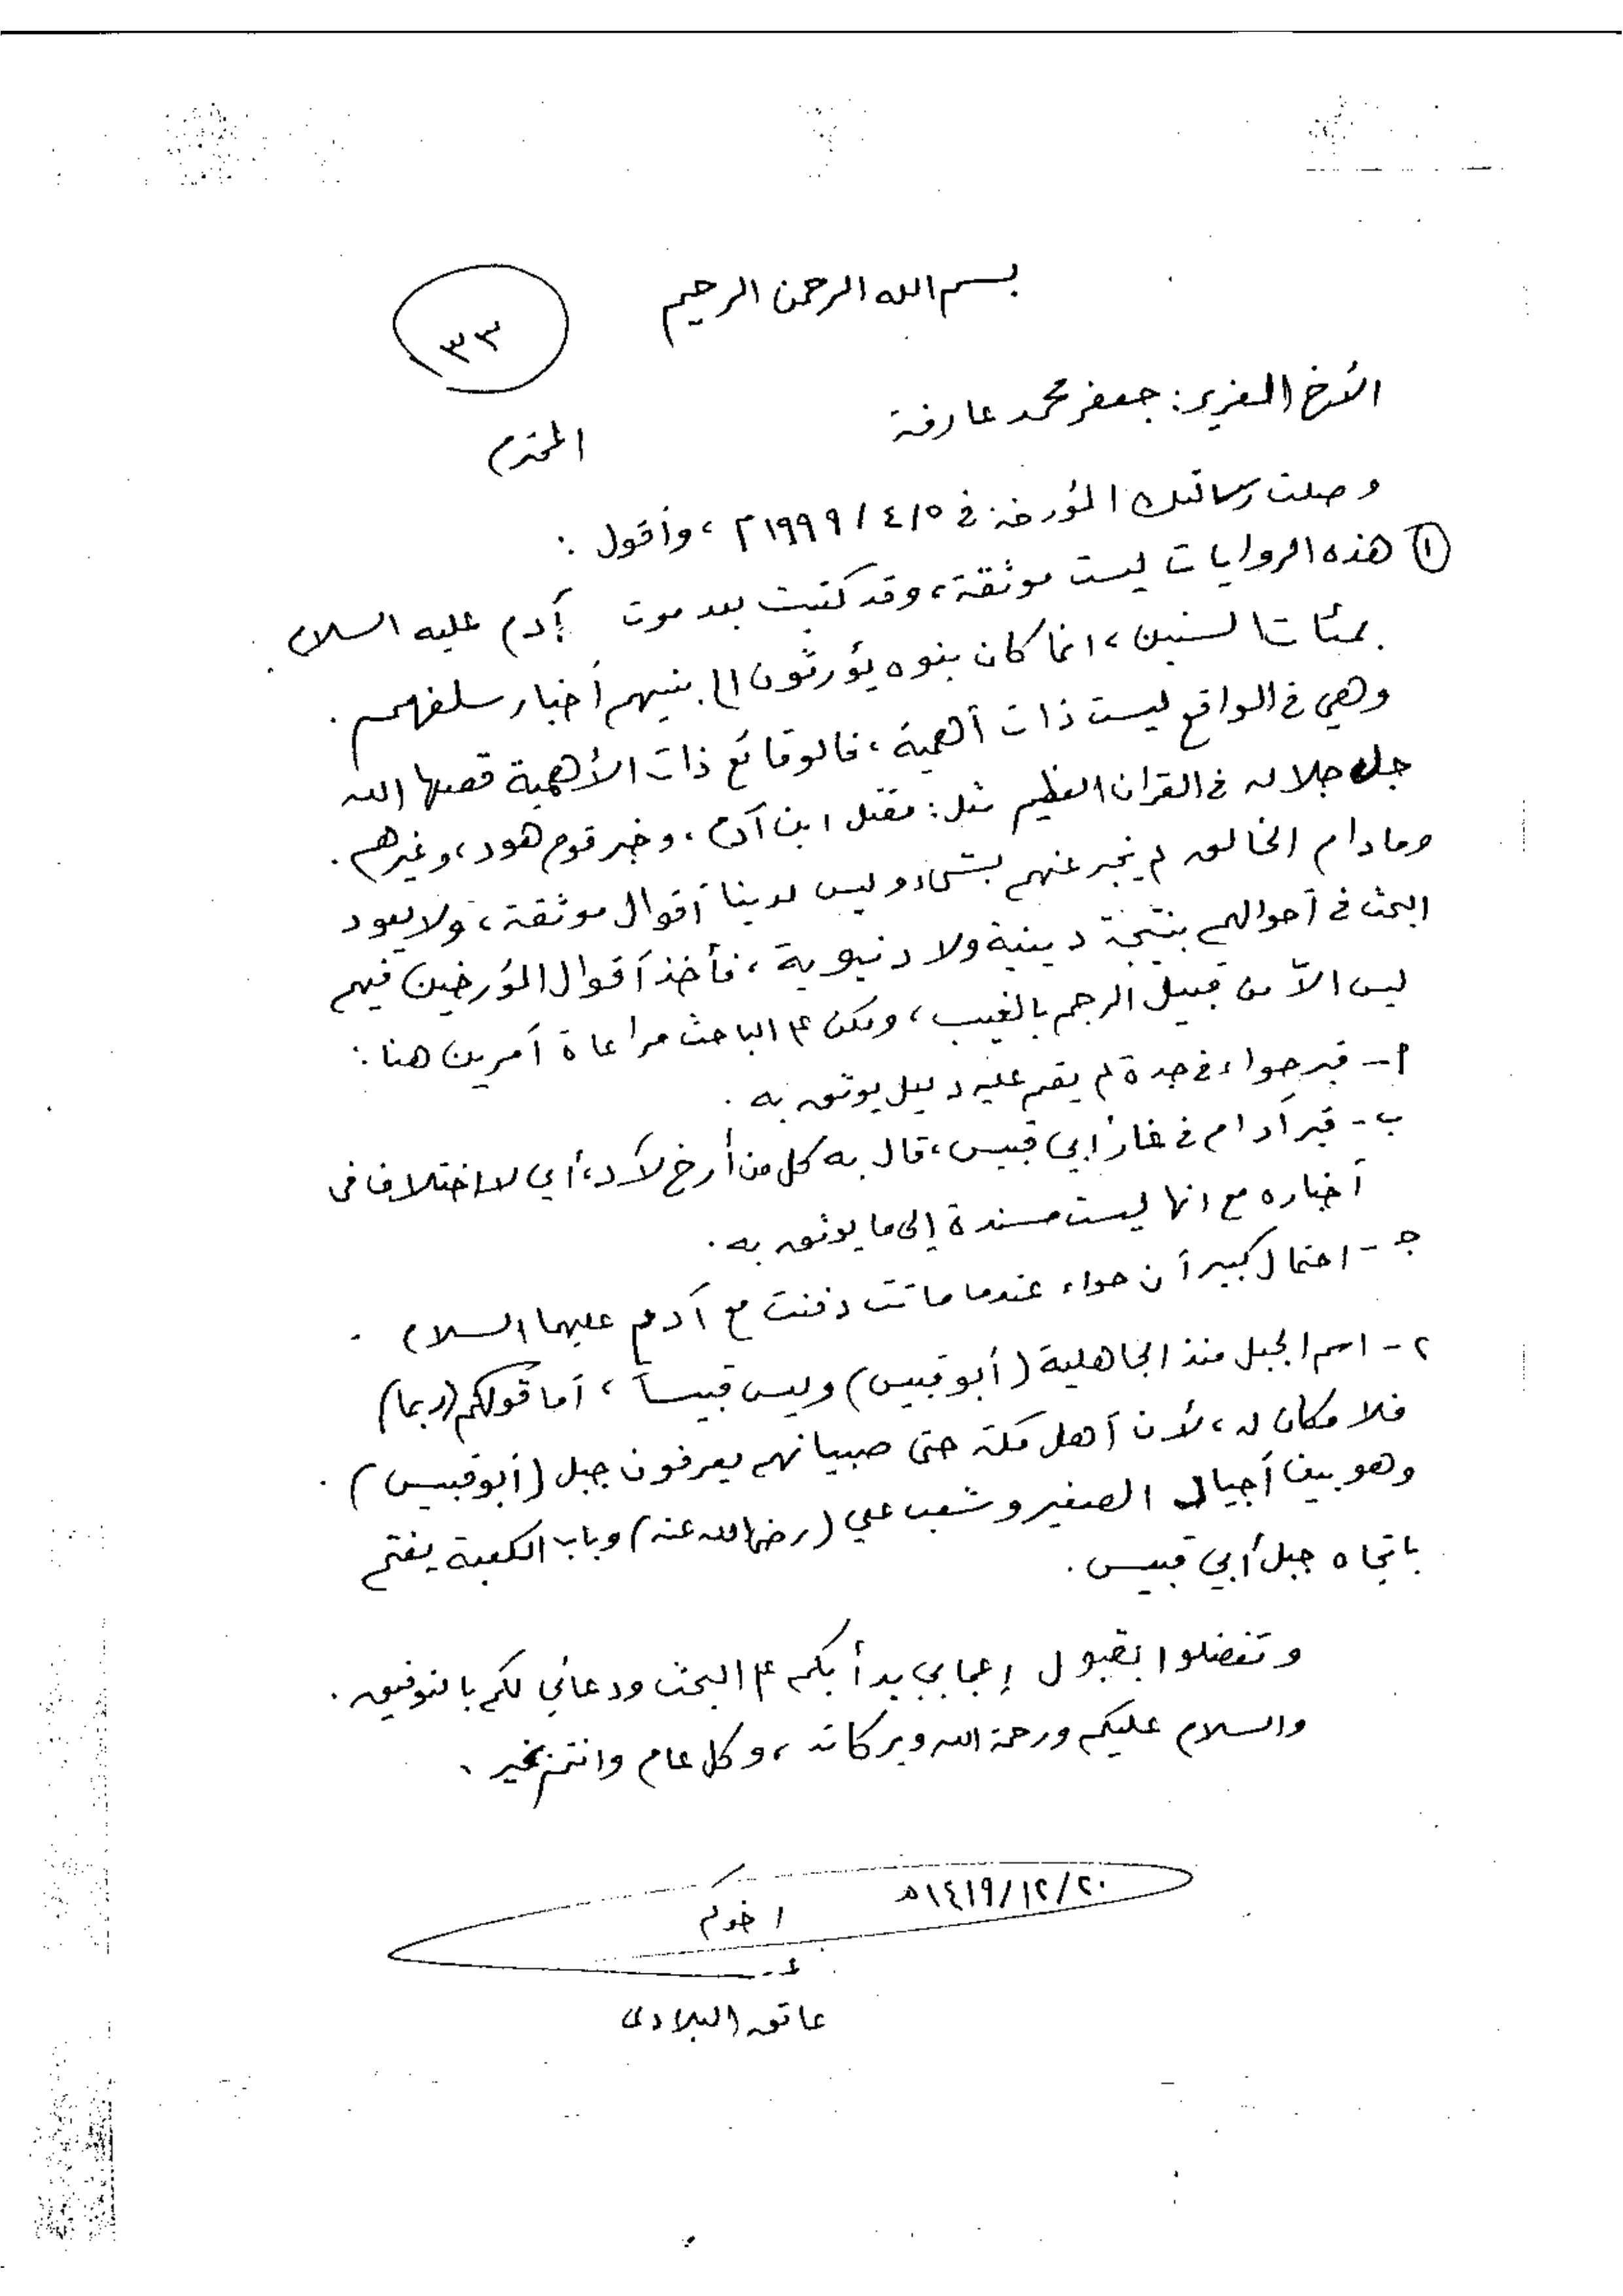 بسم الله الرحمن الرحيم
٣٣
الأخ العزيز: جعفر محمد عارفة
المحترم
وصلت رسالتك المؤرخة في ٤/٥/ ١٩٩٩م، وأقول :
① هذه الروايات ليست موثقة، وقد كتبت بعد موت آدم عليه السلام
بمئات السنين، انما كان بنوه يؤرثون إلى بنيهم أخبار سلفهم .
وهي في الواقع ليست ذات أهمية، فالوقائع ذات الأهمية قصها الله
جل جلاله في القران العظيم مثل: مقتل ابن آدم، وخبر قوم هود، وغيرهم .
ومادام الخالق لم يخبر عنهم بشيء وليس لدينا أقوال موثقة، ولا يعود
البحث في أحوالهم بنتيجة دينية ولا دنيوية، فأخذ أقوال المؤرخين فيهم
ليس الاّ من قبيل الرجم بالغيب، ولكن على الباحث مراعاة أمرين هنا :
أ- قبر حواء في جدة لم يقم عليه دليل يوثق به .
ب- قبر آدام في غار أبي قبيس، قال به كل من أرخ لآد، أي لا اختلاف في
أخباره مع انها ليست مسندة إلى ما يوثق به .
جـ - احتمال كبير أن حواء عندما ماتت دفنت مع آدم عليهما السلام .
٢ - اسم الجبل منذ الجاهلية (أبو قبيس) وليس قبيساً، أما قولكم (ربما)
فلا مكان له، لأن أهل مكة حتى صبيانهم يعرفون جبل (أبو قبيس) .
وهو بين أجيال الصغير وشعب علي (رضي الله عنه) وباب الكعبة يفتح
باتجاه جبل أبي قبيس .
وتفضلوا بقبول إعجابي بدأبكم على البحث ودعائي لكم بالتوفيق .
والسلام عليكم ورحمة الله وبركاته، وكل عام وانتم بخير .
١٤١٩/١٢/٢٠هـ
اخوكم
عاتق البلادي